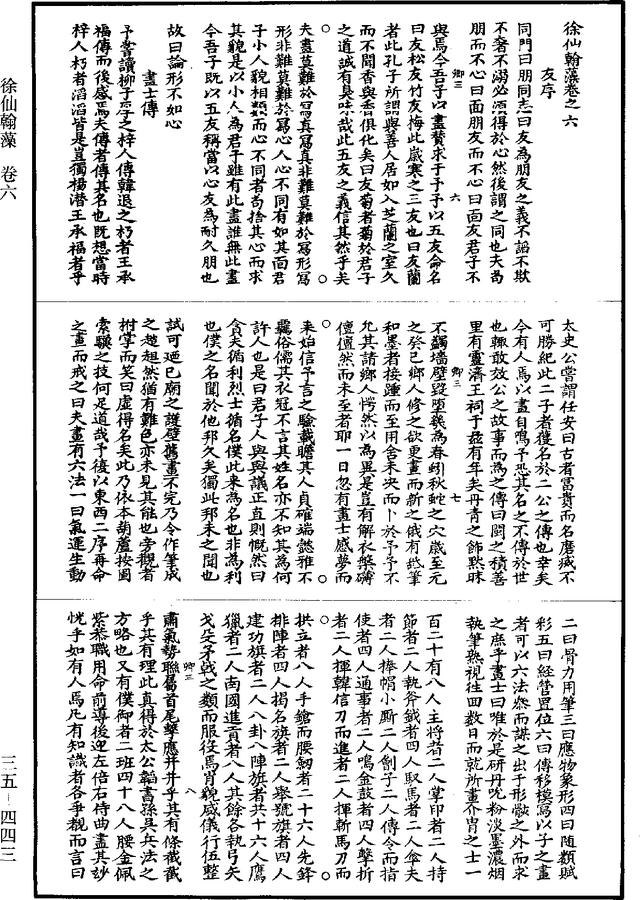 徐仙翰藻卷之六
友序
同門曰朋同志曰友為朋友之義不諂不欺
不瀆不溺必須得於心然後謂之同也夫苟
朋而不心曰面朋友而不心曰面友君子不
與焉今吾子以畫贄求于予予以五友命名
曰友松友竹友梅此歲寒之三友也曰友蘭
者此孔子所謂與善人居如入芝蘭之室久
而不聞香與香俱化矣曰友菊者菊於君子
之道誠有臭味哉此五友之義信其然乎夫
夫畫莫難於寫真寫真非難莫難於寫形寫
形非難莫難於寫心人心不同有如其面君
子小人貌相類而心不同者苟捨其心而求
其貌是以小人為君子雖有此畫誰無此畫
今吾子既以五友稱當以心友為耐久朋也
故曰論形不如心
畫士傳
予嘗讀柳子厚之梓人傳韓退之朽者王承
福傳而後感焉夫傳者傳其名也既想當時
梓人朽者滔滔皆是豈獨楊潛王承福者乎
太史公嘗謂任安曰古者富貴而名磨滅不
可勝紀此二子者獲名於二公之傳也幸矣
今有人焉以畫自鳴予恐其名之不傳於世
也輒敢效公之故事而為之傳曰閩之積善
里有靈濟王祠于茲有年矣丹青之飾黙昧
不蠲墻壁毀墮幾為春蚓秋蛇之穴歲至元
之癸巳鄉人修之欲更畫而新之俄有𥿄筆
和墨者接踵而至用舍未决而卜於予予不
允其請鄉人愕然以為異是豈有解衣槃礴
儃儃然而未至者耶一日忽有畫士感夢而
來始信予言之驗載瞻其人貞確端慤雅不
羈俗儒其衣冠不言其姓名亦不知其為何
許人也是曰君子人與與議正直則慨然曰
貪夫循利烈士循名僕此來為名也非為利
也僕之名聞於他邦久矣獨此邦未之聞也
試可廼已廟之護壁舊畫不完乃令作筆成
之趑趄然猶有難色亦未見其能也旁觀者
拊掌而笑曰虛得名矣此乃依本葫蘆按圖
索驥之技何足道哉予後以東西二序再命
之畫而戒之曰夫畫有六法一曰氣運生動
二曰骨力用筆三曰應物象形四曰随類賦
彩五曰經營置位六曰傳移模寫以子之畫
者可以六法叅而謀之出于形骸之外而求
之庶乎畫士曰唯於是研丹吮粉淡墨濃烟
執筆熟視往囬數日而就所畫介胄之士一
百二十有八人主將者二人掌印者二人持
節者二人執斧鉞者四人馭馬者二人傘夫
者二人捧帽小厮二人劊子二人傳令而指
使者四人通事者二人鳴金鼓者四人擊折
者二人揮韓信刀而進者二人揮斬馬刀而
拱立者八人手鎗而腰劒者二十六人先鋒
排陣者四人揭名旗者二人舉號旗者四人
建功旗者二人八卦八陣旗者共十六人鷹
獵者二人南國進貢者八人其餘各執弓矢
戈殳矛戟之類而服役焉肖貌威儀行伍整
肅氣勢聯屬首尾擊應井井乎其有條截截
乎其有理此真得於太公韜書孫吳兵法之
方略也又有僕御者二班四十八人腰金佩
紫恭職用命前導後迎左倍右侍曲盡其妙
恍乎如有人焉凡有知識者各爭覩而言曰
徐仙翰藻 卷六
三五－四四三
卿三 六
卿三 七
卿三 八